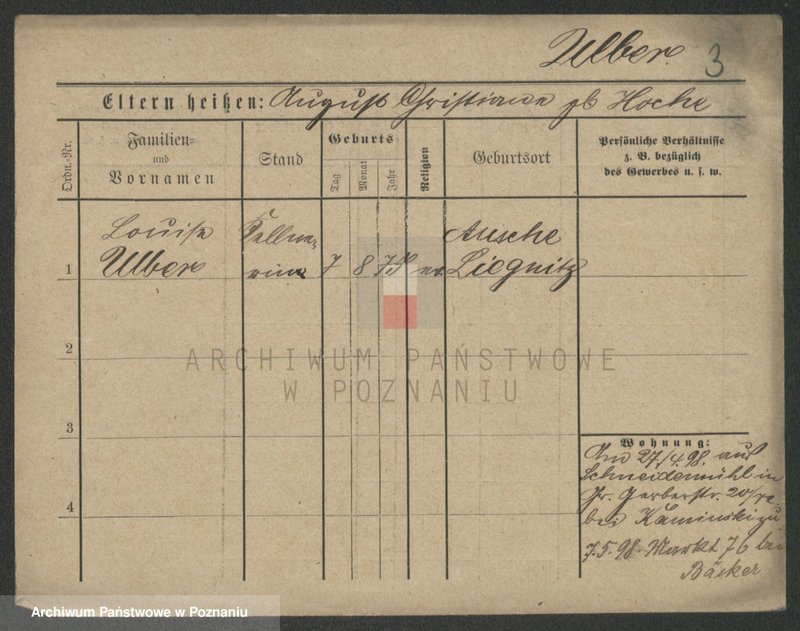 Ulber. 3
Eltern heißen: August Christiane gb Hoche
Ordn.-Nr.
Familien-
und
Vornamen
Stand
Geburts
Tag
Monat
Jahr
Religion
Geburtsort
Persönliche Verhältnisse
z. B. bezüglich
des Gewerbes u. s. w.
Louise Kellne- Ausche
1 Ulber rin 7 8 75 ev. Liegnitz
2
ARCHIWUM PAŃSTWOWE
W POZNANIU
3
4
Wohnung:
Am 27/4.98. aus
Schneidemühl in
Gr. Gerberstr. 20
bei Kaminski zu
7.5.98. Markt 76 bei
Bäcker
Archiwum Państwowe w Poznaniu